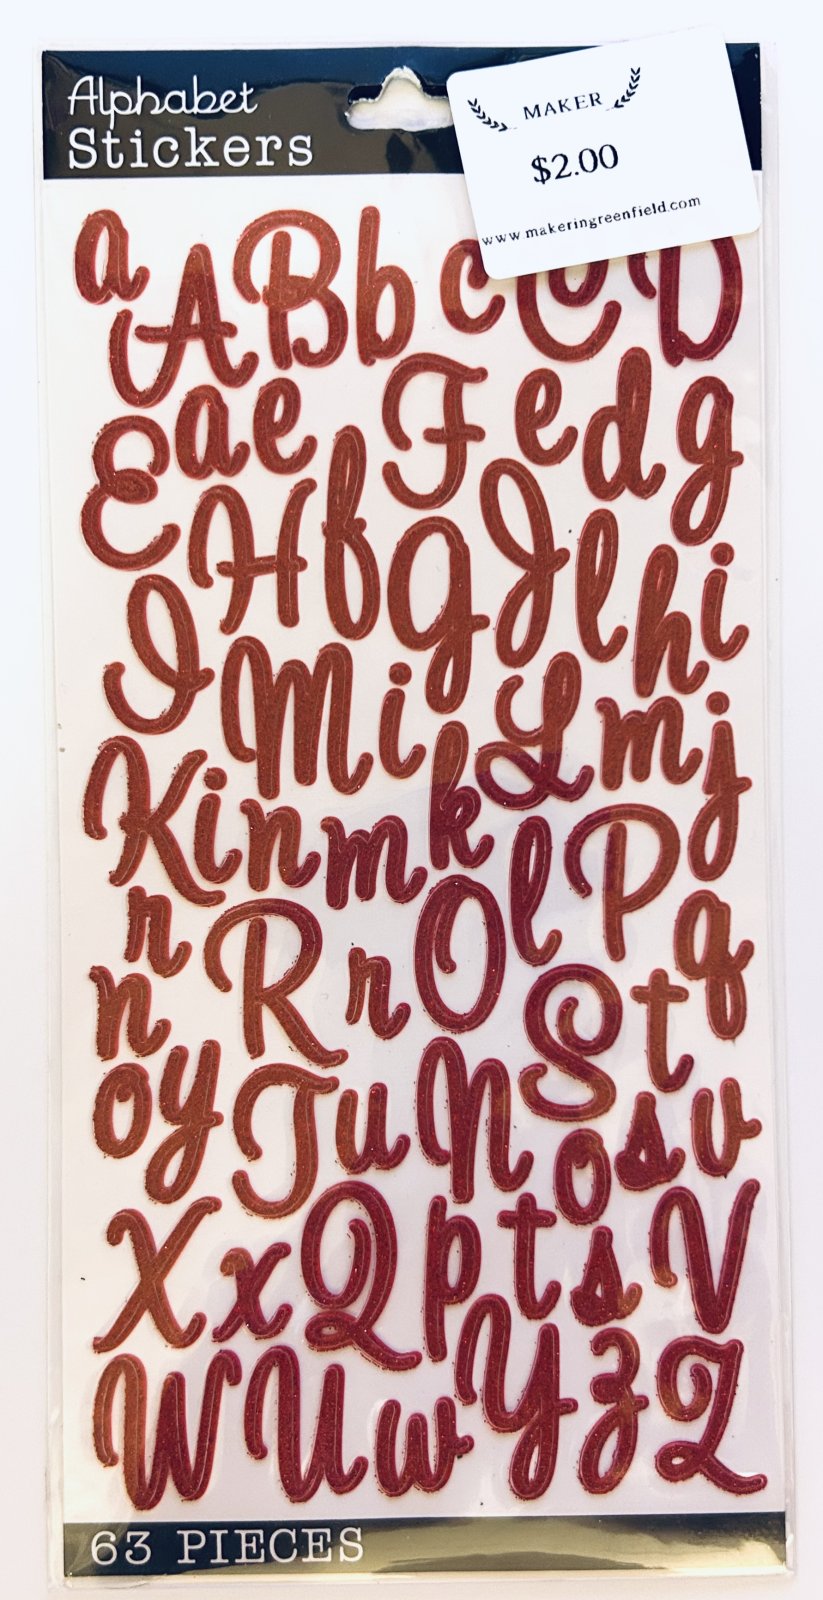 Alphabet
Stickers
MAKER
$2.00
www.makeringreenfield.com
a A B b c C D
E a e F e d g
H f G J l h i
I M i L m j
K i n m k l P
r R r O q
n S t
o y T u N o s v
X x Q p t s V
W U w Y z Z
63 PIECES